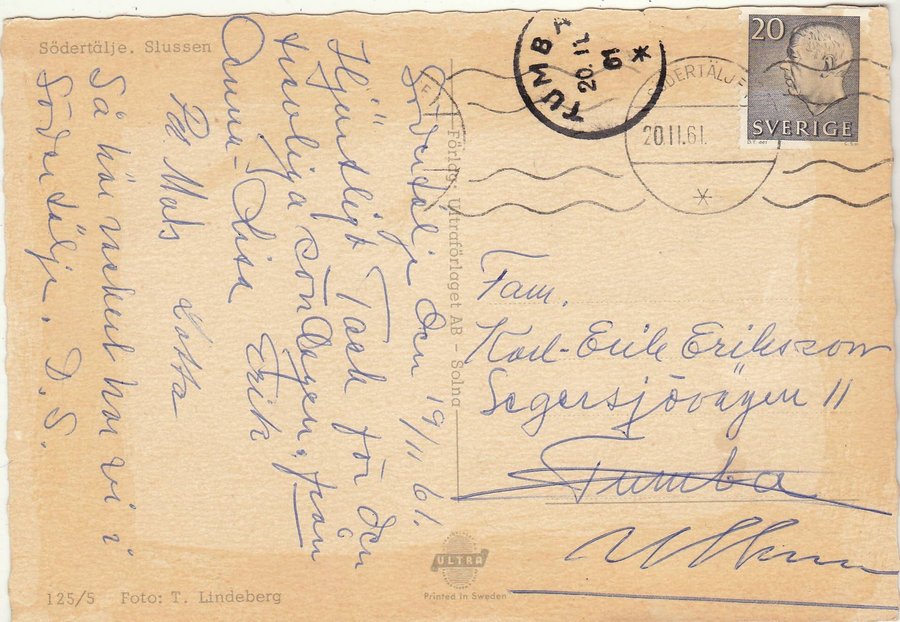 Södertälje. Slussen
Södertälje den 19/11 61.
Hjärtligt Tack för den
trevliga söndagen, från
Anna-Lisa Erik
Mats Lotta
Så här vackert har vi i
Södertälje. D.S.
Förlag: Ultraförlaget AB - Solna
TUMBA
20.11.
61
*
SÖDERTÄLJE
20.11.61.
*
20
SVERIGE
Fam.
Karl-Erik Eriksson
Segersjövägen 11
Tumba
ULTRA
Printed in Sweden
125/5 Foto: T. Lindeberg